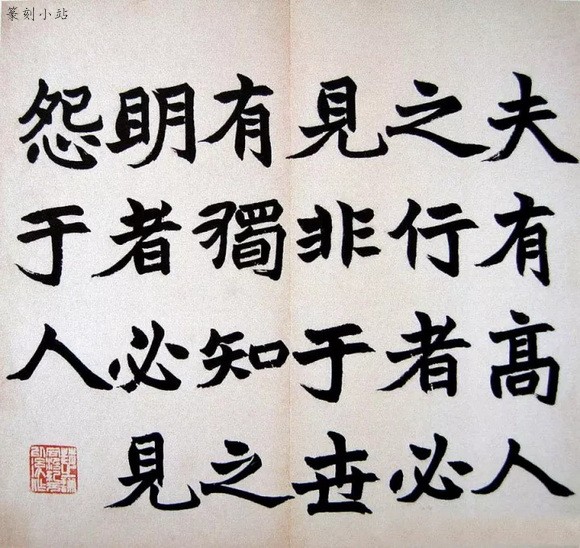 篆刻小站
夫有髙人
之行者必
見非于世
有獨知之
眀者必見
怨于人